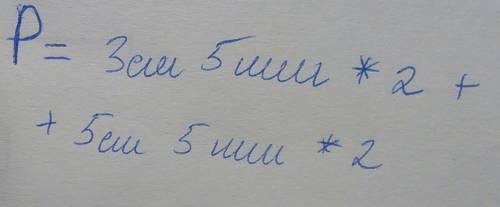 P = 3см 5мм * 2 +
+ 5см 5мм * 2